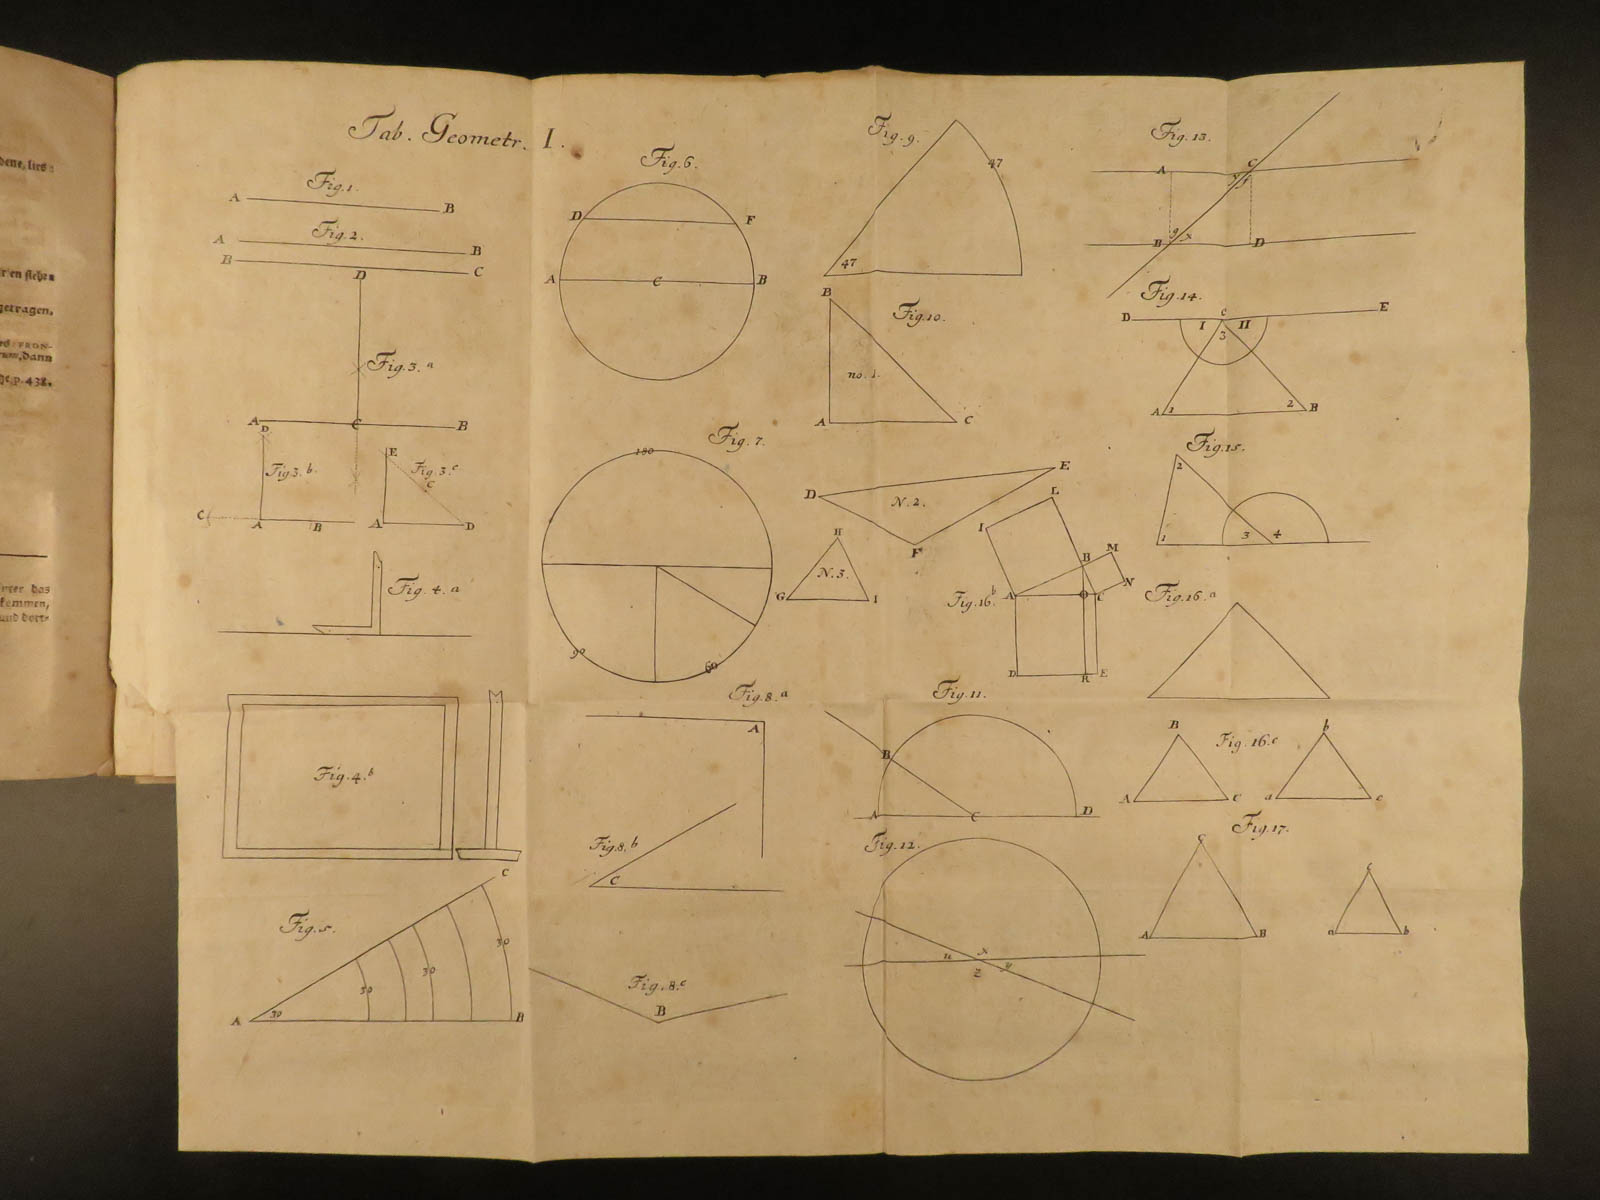 Tab. Geometr. I.
Fig. 1.
A B
Fig. 2.
A B
B C
D
Fig. 3. a
A C B
D
Fig. 3. b
C A B
E
Fig. 3. c
C
A D
Fig. 4. a
Fig. 4. b
Fig. 5.
C
30
30
30
A 30 B
Fig. 6.
D F
A C B
Fig. 7.
180
90 60
Fig. 8. a
A
Fig. 8. b
C
Fig. 8. c
B
Fig. 9.
47
47
B
Fig. 10.
no. 1.
A C
D E
N. 2.
F
H
N. 3.
G I
Fig. 11.
B
A C D
Fig. 12.
x
u
z y
Fig. 13.
A C
B D
x
Fig. 14.
D C E
I II
3
A 1 2 B
Fig. 15.
2
1 3 4
Fig. 16. b
L
I
B M
N
A C
D R E
Fig. 16. a
Fig. 16. c
B b
A C a c
Fig. 17.
C c
A B a b
getragen,
dann
p. 438.
das
kommen,
und dort-